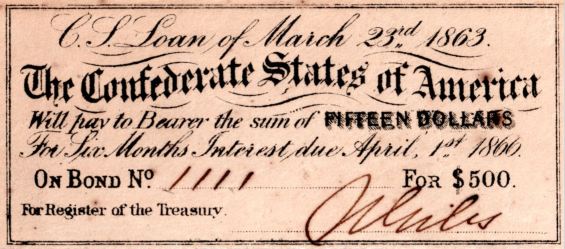 C. S. Loan of March 23rd. 1863.
The Confederate States of America
Will pay to Bearer the sum of FIFTEEN DOLLARS
For Six Months Interest, due April, 1st. 1866.
ON BOND No. 1111 FOR $500.
For Register of the Treasury.